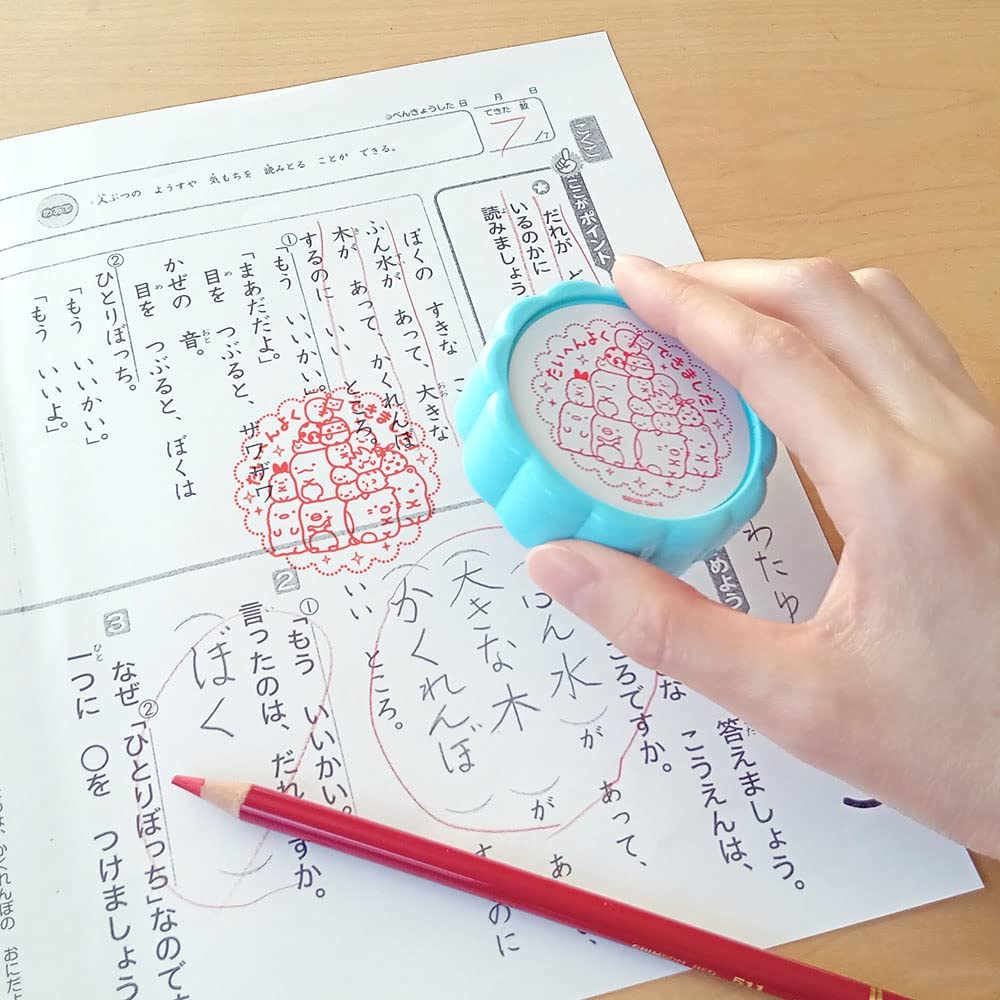 べんきょうした 日 月 日
できた 数
7/7
こくご
めあて
ぶつの ようすや 気もちを 読みとる ことが できる。
ここがポイント
だれが ど
いるのかに
読みましょう
ぼくの すきな こ
ふん水が あって、大きな
木が あって、かくれんぼ
するのに いい ところ。
①「もう いいかい。
「まあだだよ。」
目を つぶると、ザワザワ
かぜの 音。
目を つぶると、ぼくは
②ひとりぼっち。
「もう いいかい。」
「もう いいよ。」
たいへんよく できました!
たいへんよく できました!
わたゆ
めよう
答えましょう。
な こうえんは、
ころですか。
ふん水 が あって、
大きな木 が あ
かくれんぼ するのに
いい ところ。
2 ①「もう いいかい。
言ったのは、だれですか。
ぼく
3 なぜ ②「ひとりぼっち」なのです
一つに ○を つけましょう
かくれんぼの おにだよ
CRIMSON RED 511